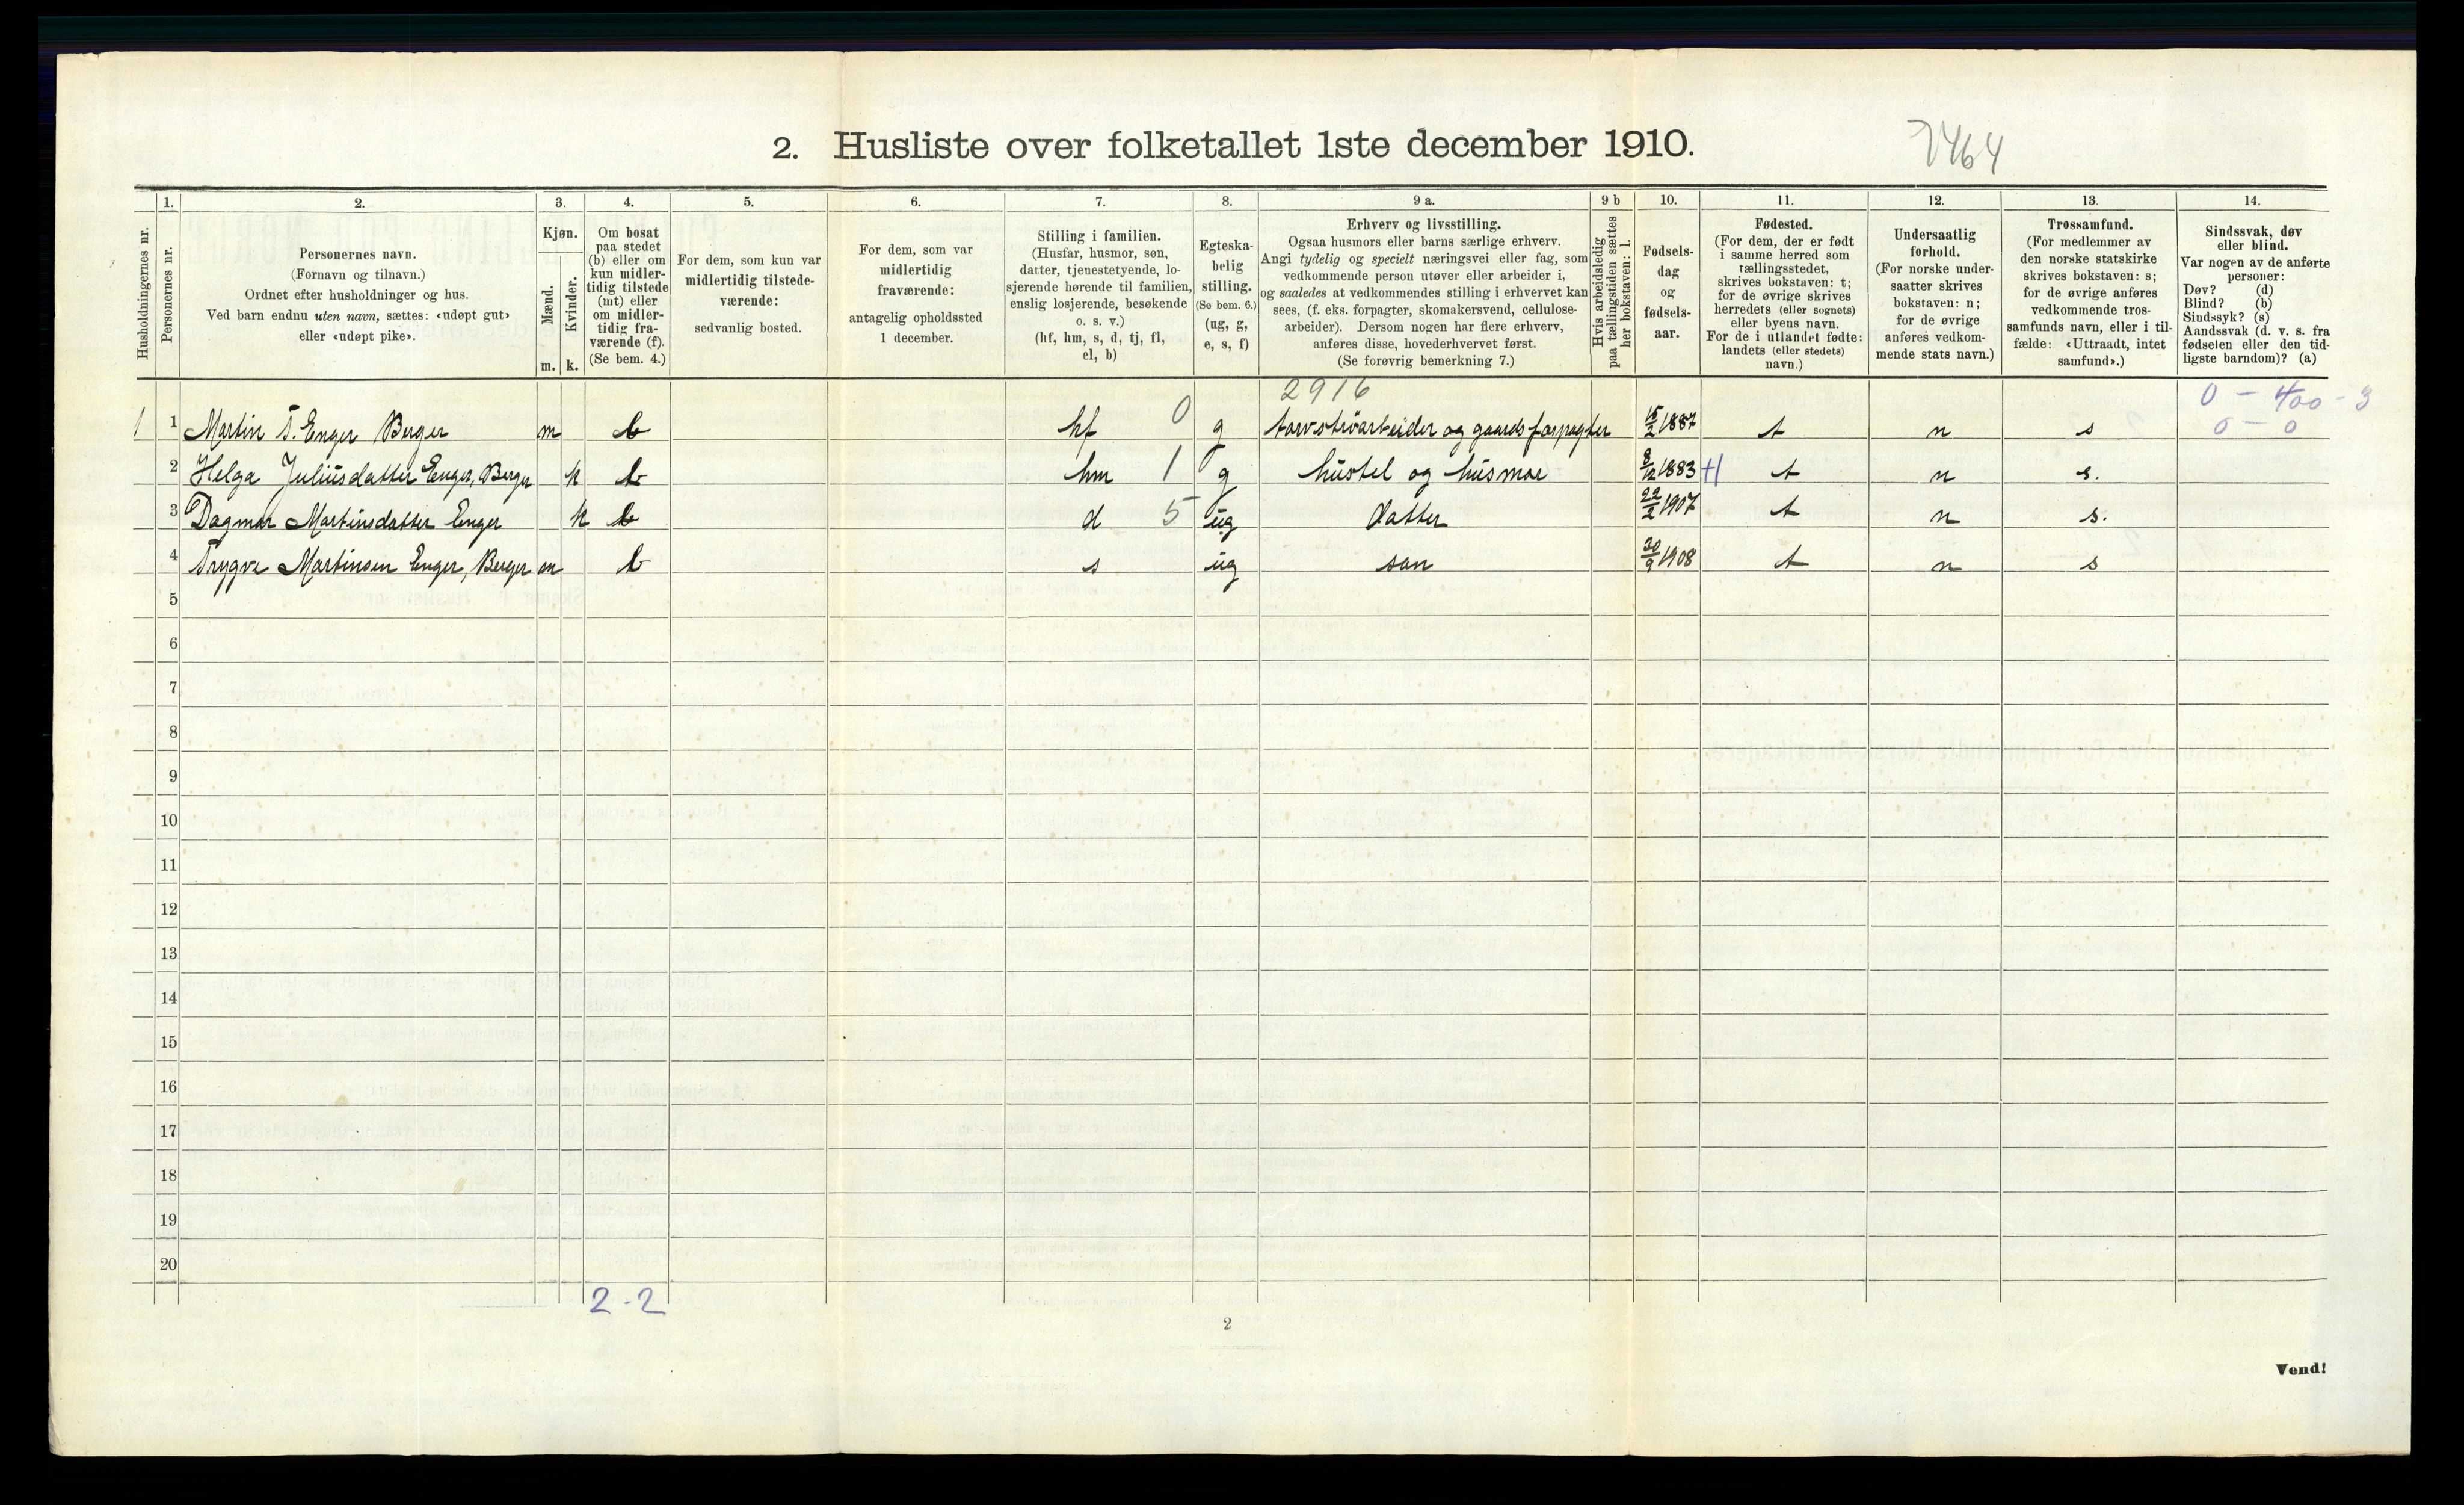 2. Husliste over folketallet 1ste december 1910.
7464
Husholdningernes nr.
1.
Personernes nr.
2.
Personernes navn.
(Fornavn og tilnavn.)
Ordnet efter husholdninger og hus.
Ved barn endnu uten navn, sættes: «udøpt gut»
eller «udøpt pike».
3.
Kjøn.
Mænd.
Kvinder.
m. k.
4.
Om bosat
paa stedet
(b) eller om
kun midler-
tidig tilstede
(mt) eller
om midler-
tidig fra-
værende (f).
(Se bem. 4.)
5.
For dem, som kun var
midlertidig tilstede-
værende:
sedvanlig bosted.
6.
For dem, som var
midlertidig
fraværende:
antagelig opholdssted
1 december.
7.
Stilling i familien.
(Husfar, husmor, søn,
datter, tjenestetyende, lo-
sjerende hørende til familien,
enslig losjerende, besøkende
o. s. v.)
(hf, hm, s, d, tj, fl,
el, b)
8.
Egteska-
belig
stilling.
(Se bem. 6.)
(ug, g,
e, s, f)
9 a.
Erhverv og livsstilling.
Ogsaa husmors eller barns særlige erhverv.
Angi tydelig og specielt næringsvei eller fag, som
vedkommende person utøver eller arbeider i,
og saaledes at vedkommendes stilling i erhvervet kan
sees, (f. eks. forpagter, skomakersvend, cellulose-
arbeider). Dersom nogen har flere erhverv,
anføres disse, hovederhvervet først.
(Se forøvrig bemerkning 7.)
9 b
Hvis arbeidsledig
paa tællingstiden sættes
her bokstaven: l.
10.
Fødsels-
dag
og
fødsels-
aar.
11.
Fødested.
(For dem, der er født
i samme herred som
tællingsstedet,
skrives bokstaven: t;
for de øvrige skrives
herredets (eller sognets)
eller byens navn.
For de i utlandet fødte:
landets (eller stedets)
navn.)
12.
Undersaatlig
forhold.
(For norske under-
saatter skrives
bokstaven: n;
for de øvrige
anføres vedkom-
mende stats navn.)
13.
Trossamfund.
(For medlemmer av
den norske statskirke
skrives bokstaven: s;
for de øvrige anføres
vedkommende tros-
samfunds navn, eller i til-
fælde: «Uttraadt, intet
samfund».)
14.
Sindssvak, døv
eller blind.
Var nogen av de anførte
personer:
Døv? (d)
Blind? (b)
Sindssyk? (s)
Aandssvak (d. v. s. fra
fødselen eller den tid-
ligste barndom)? (a)
2916
0 - 400 - 3
1 1 Martin T. Enger Berger m b hf 0 g torvströarbeider og gaardsforpagter 15/2 1887 t n s 0 - 0
2 Helga Juliusdatter Enger, Berger k b hm 1 g hustel og husmor 8/12 1883 t n s.
3 Dagmar Martinsdatter Enger k b d 5 ug datter 22/2 1907 t n s.
4 Trygve Martinsen Enger, Berger m b s ug søn 30/9 1908 t n s
5
6
7
8
9
10
11
12
13
14
15
16
17
18
19
20
2 - 2
2
Vend!